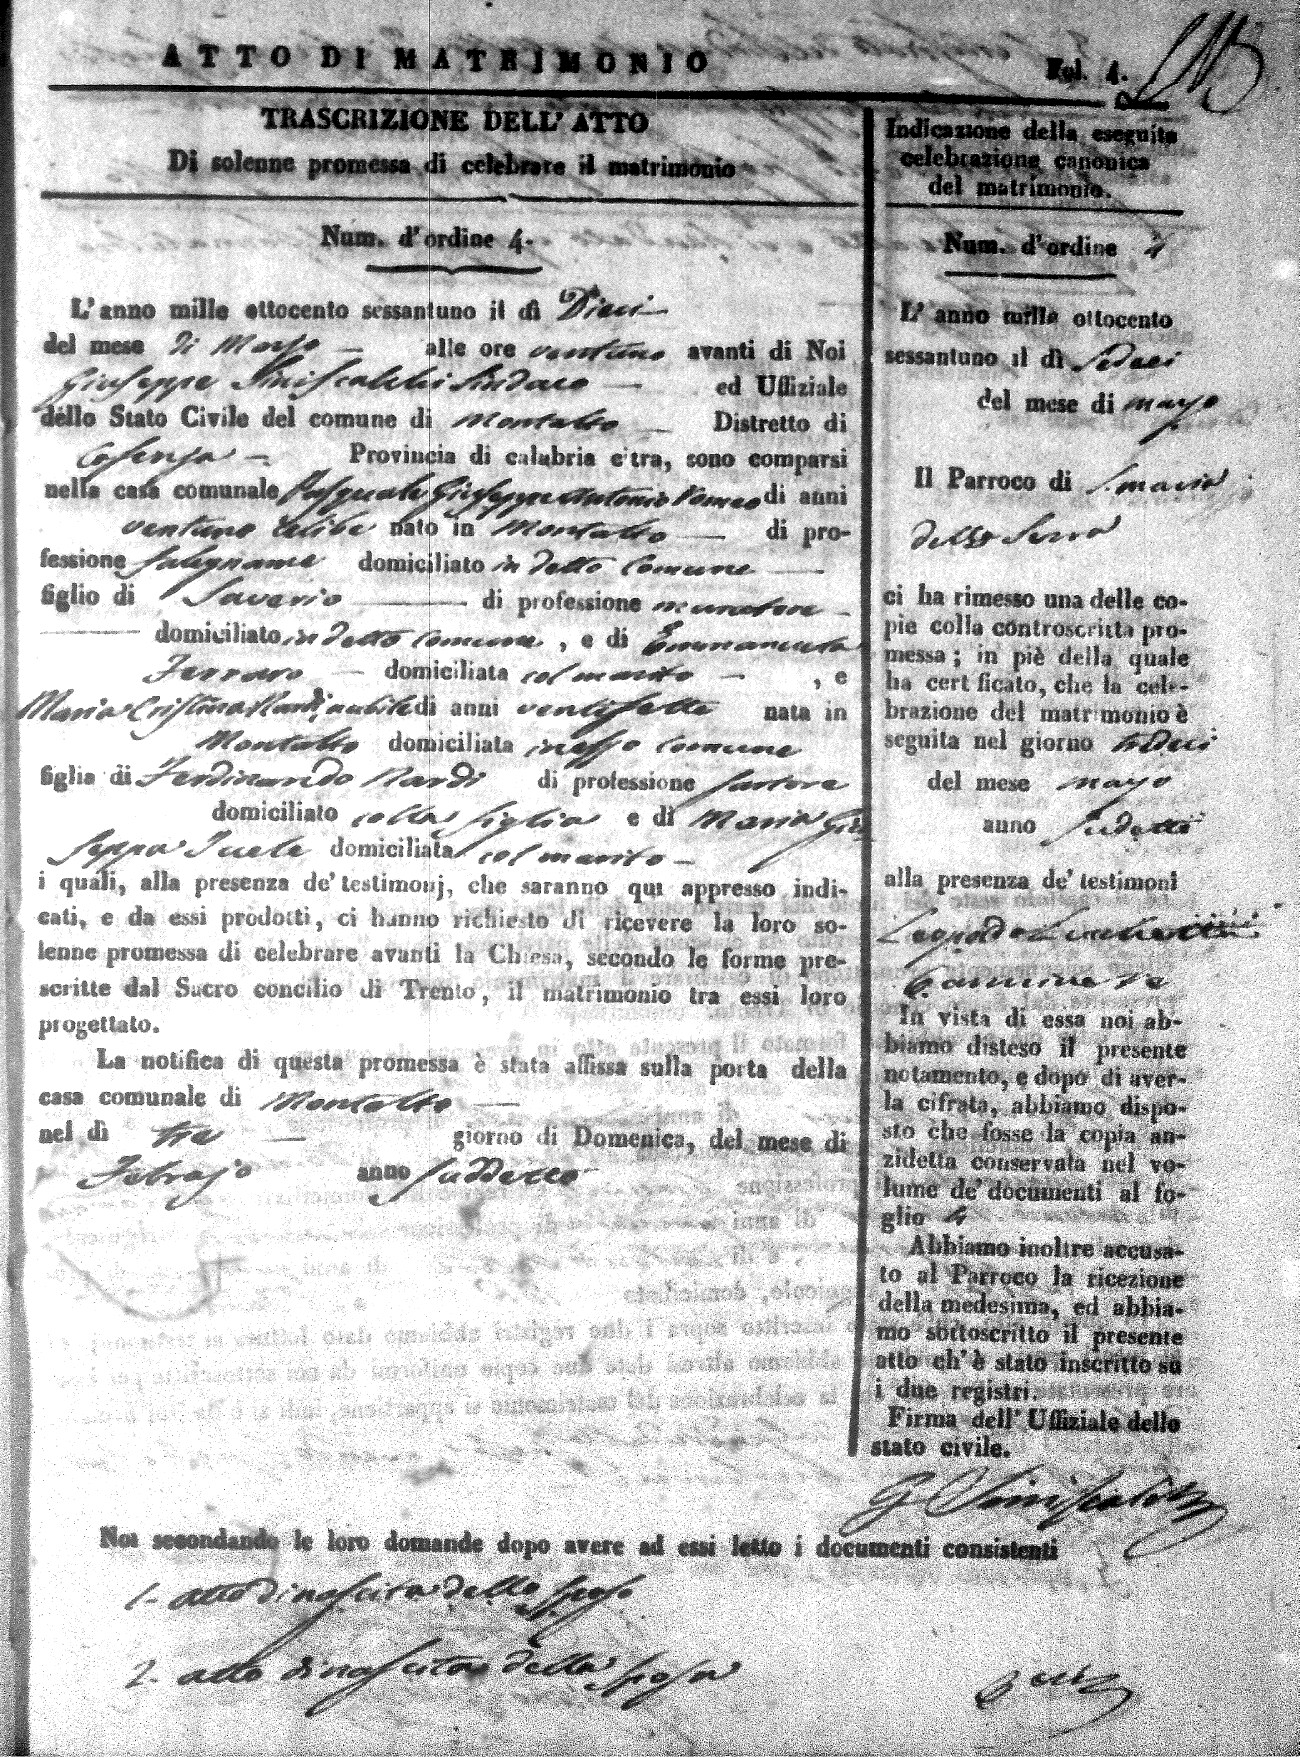 ATTO DI MATRIMONIO
Fol. 4.
TRASCRIZIONE DELL' ATTO
Di solenne promessa di celebrare il matrimonio
Num. d'ordine 4.
L'anno mille ottocento sessantuno il dì Dieci
del mese di Marzo alle ore ventuno avanti di Noi
Giuseppe Siniscalchi Sindaco ed Uffiziale
dello Stato Civile del comune di Montalto Distretto di
Cosenza Provincia di calabria citra, sono comparsi
nella casa comunale Pasquale Giuseppe Antonio Romeo di anni
ventuno celibe nato in Montalto di pro-
fessione falegname domiciliato in detto Comune
figlio di Saverio di professione muratore
domiciliato in detto Comune, e di Emmanuela
Ferraro domiciliata col marito , e
Maria Cristina Nardi, nubile di anni ventisette nata in
Montalto domiciliata in esso comune
figlia di Ferdinando Nardi di professione sartore
domiciliato colla figlia e di Maria Giu
seppa Iuele domiciliata col marito
i quali, alla presenza de' testimonj, che saranno qui appresso indi-
cati, e da essi prodotti, ci hanno richiesto di ricevere la loro so-
lenne promessa di celebrare avanti la Chiesa, secondo le forme pre-
scritte dal Sacro concilio di Trento, il matrimonio tra essi loro
progettato.
La notifica di questa promessa è stata affissa sulla porta della
casa comunale di Montalto
nel dì tre giorno di Domenica, del mese di
Febrajo anno suddetto
Indicazione della eseguita
celebrazione canonica
del matrimonio.
Num. d'ordine 4
L' anno mille ottocento
sessantuno il dì sedeci
del mese di marzo
Il Parroco di S. Maria
della Serra
ci ha rimesso una delle co-
pie colla controscritta pro-
messa; in piè della quale
ha cert ficato, che la cele-
brazione del matr monio è
seguita nel giorno sedeci
del mese marzo
anno sudetto
alla presenza de' testimoni
Carmine
In vista di essa noi ab-
biamo disteso il presente
notamento, e dopo di aver-
la cifrata, abbiamo dispo-
sto che fosse la copia an-
zidetta conservata nel vo-
lume de' documenti al fo-
glio 4
Abbiamo inoltre accusa-
to al Parroco la ricezione
della medesima, ed abbia-
mo sottoscritto il presente
atto ch' è stato inscritto su
i due registri.
Firma dell' Uffiziale dello
stato civile.
G Siniscalchi
Noi secondando le loro domande dopo avere ad essi letto i documenti consistenti
1. atto di nascita dello sposo
2. atto di nascita della sposa